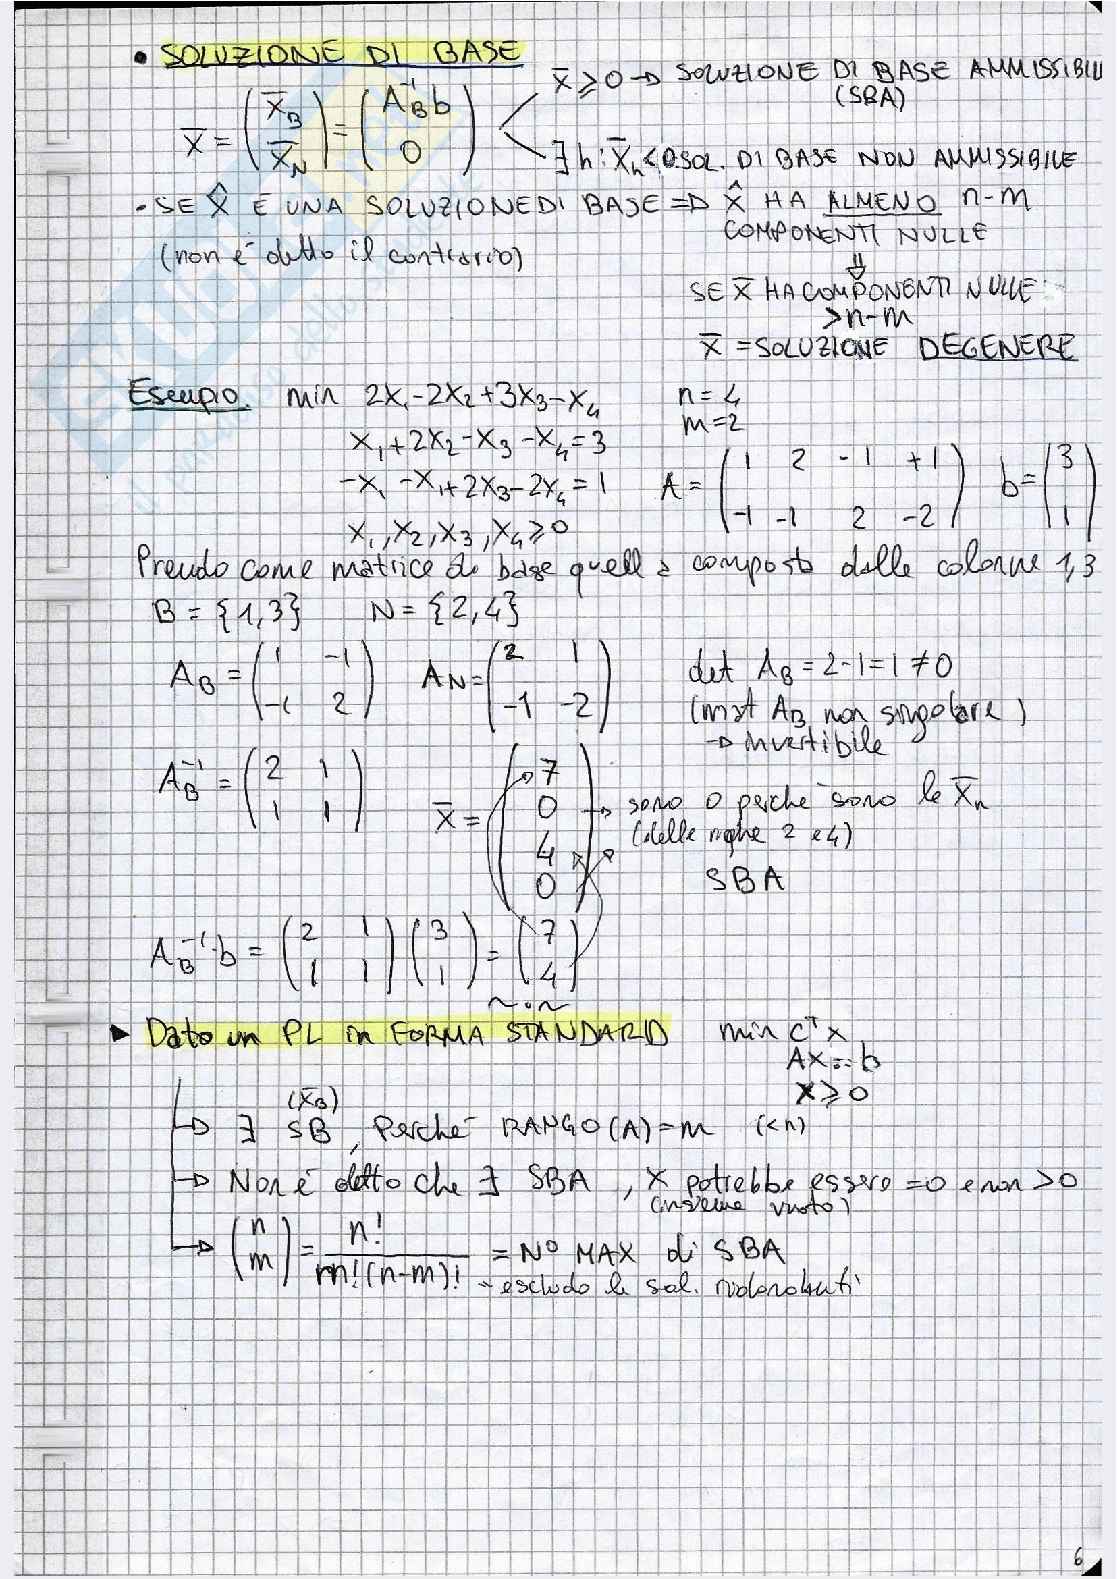 • SOLUZIONE DI BASE
x̄ = (x̄_B x̄_N) = (A_B⁻¹b 0)
x̄ ≥ 0 → SOLUZIONE DI BASE AMMISSIBILE
(SBA)
∃ h : x̄_h < 0 SOL. DI BASE NON AMMISSIBILE
- SE x̂ È UNA SOLUZIONE DI BASE ⇒ x̂ HA ALMENO n-m
COMPONENTI NULLE
(non è detto il contrario)
⇓
SE x̄ HA COMPONENTI NULLE
> n-m
x̄ = SOLUZIONE DEGENERE
Esempio. min 2x₁-2x₂+3x₃-x₄
n=4
m=2
x₁+2x₂-x₃-x₄=3
-x₁-x₁+2x₃-2x₄=1
x₁,x₂,x₃,x₄≥0
A = (1 2 -1 +1
-1 -1 2 -2)
b = (3
1)
Prendo come matrice di base quella composta dalle colonne 1,3
B = {1,3} N = {2,4}
A_B = (1 -1
-1 2)
A_N = (2 1
-1 -2)
det A_B = 2-1=1 ≠ 0
(mat A_B non singolare)
→ invertibile
A_B⁻¹ = (2 1
1 1)
x̄ = (7
0
4
0)
→ sono 0 perché sono le x̄_n
(delle righe 2 e 4)
SBA
A_B⁻¹·b = (2 1
1 1) (3
1) = (7
4)
~.~
► Dato un PL in FORMA STANDARD
min cᵀx
Ax = b
x ≥ 0
(x̄_B)
→ ∃ SB, Perché RANGO(A)=m (<n)
→ Non è detto che ∃ SBA, x potrebbe essere =0 e non >0
(insieme vuoto)
→ (n m) = n! / m!(n-m)! = N° MAX di SBA
- escludo le sol. ridondanti
6